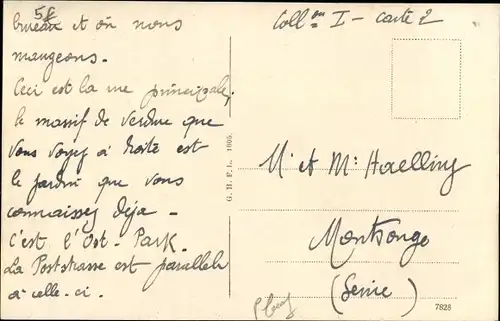 5F
bureau et où nous
mangeons.
Ceci est la rue principale,
le massif de verdure que
vous voyez à droite est
le jardin que vous
connaissez déja -
C'est l'Ost-Park.
La Poststrasse est parallèle
à celle-ci.
G. H. F. L. 1905.
Coll on I - carte 2
Mr et Me Haelling
Montrouge
(Seine)
7828